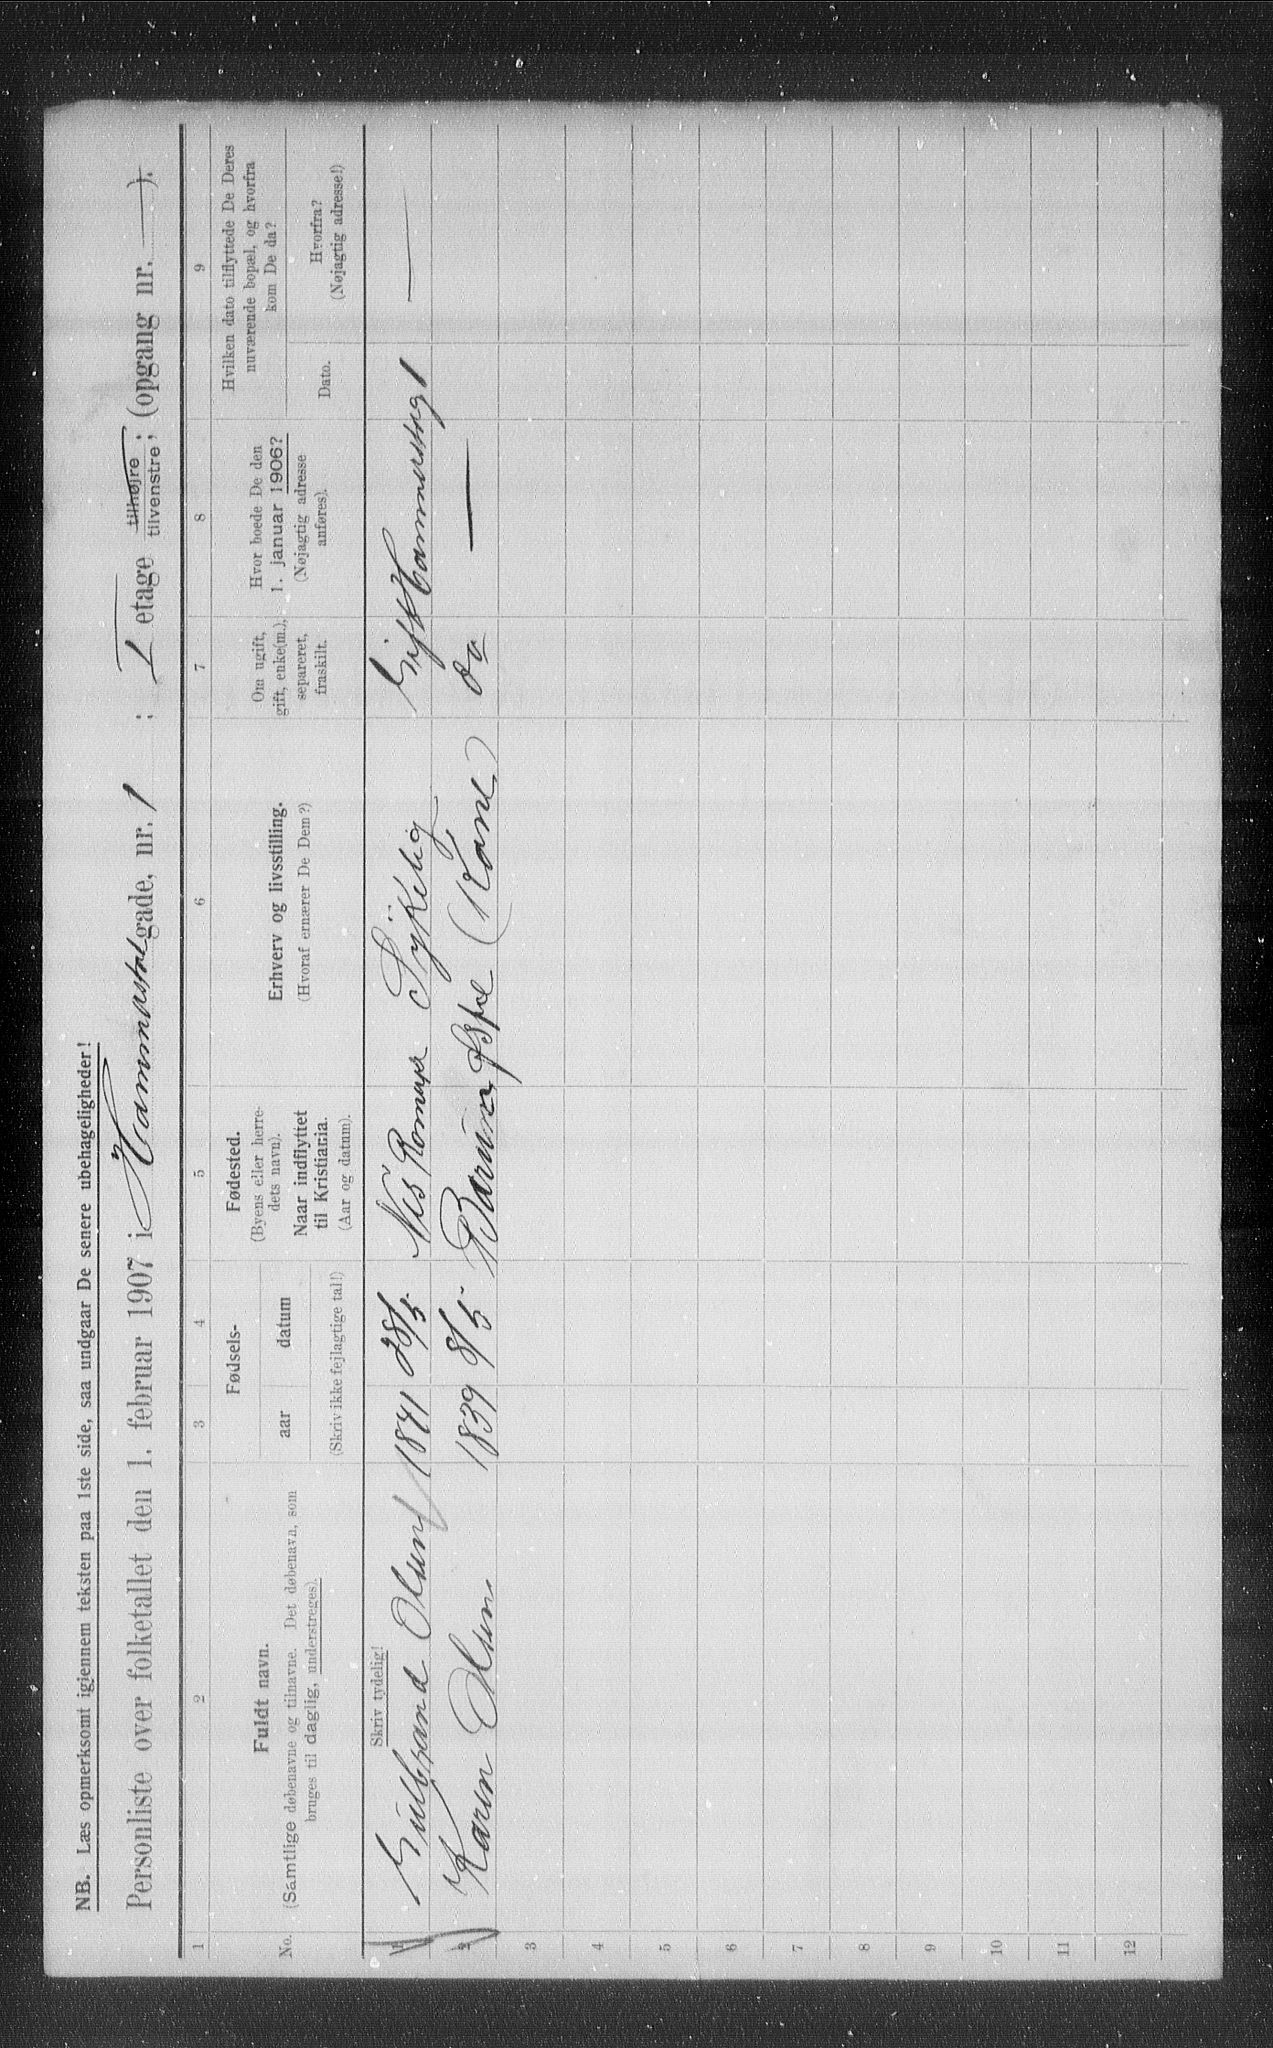 NB. Læs opmerksomt igjennem teksten paa 1ste side, saa undgaar De senere ubehageligheder!
Personliste over folketallet den 1. februar 1907 i Hammerstadgade, nr. 1 ; I etage tilhøjre tilvenstre; (opgang nr. — ).
1 2 3 4 5 6 7 8 9
No.
Fuldt navn.
(Samtlige døbenavne og tilnavne. Det døbenavn, som
bruges til daglig, understreges).
Fødsels-
aar datum
(Skriv ikke fejlagtige tal!)
Fødested.
(Byens eller herre-
dets navn).
Naar indflyttet
til Kristiania.
(Aar og datum).
Erhverv og livsstilling.
(Hvoraf ernærer De Dem?)
Om ugift,
gift, enke(m.),
separeret,
fraskilt.
Hvor boede De den
1. januar 1906?
(Nøjagtig adresse
anføres).
Hvilken dato tilflyttede De Deres
nuværende bopæl, og hvorfra
kom De da?
Dato.
Hvorfra?
(Nøjagtig adresse!)
Skriv tydelig!
1 Gulbrand Olsen 1841 28/5 Nes Romerike Sykelig Gift Hammerstgt 1 —
2 Karen Olsen 1839 8/5 Bærum (Kone) do —
3
4
5
6
7
8
9
10
11
12